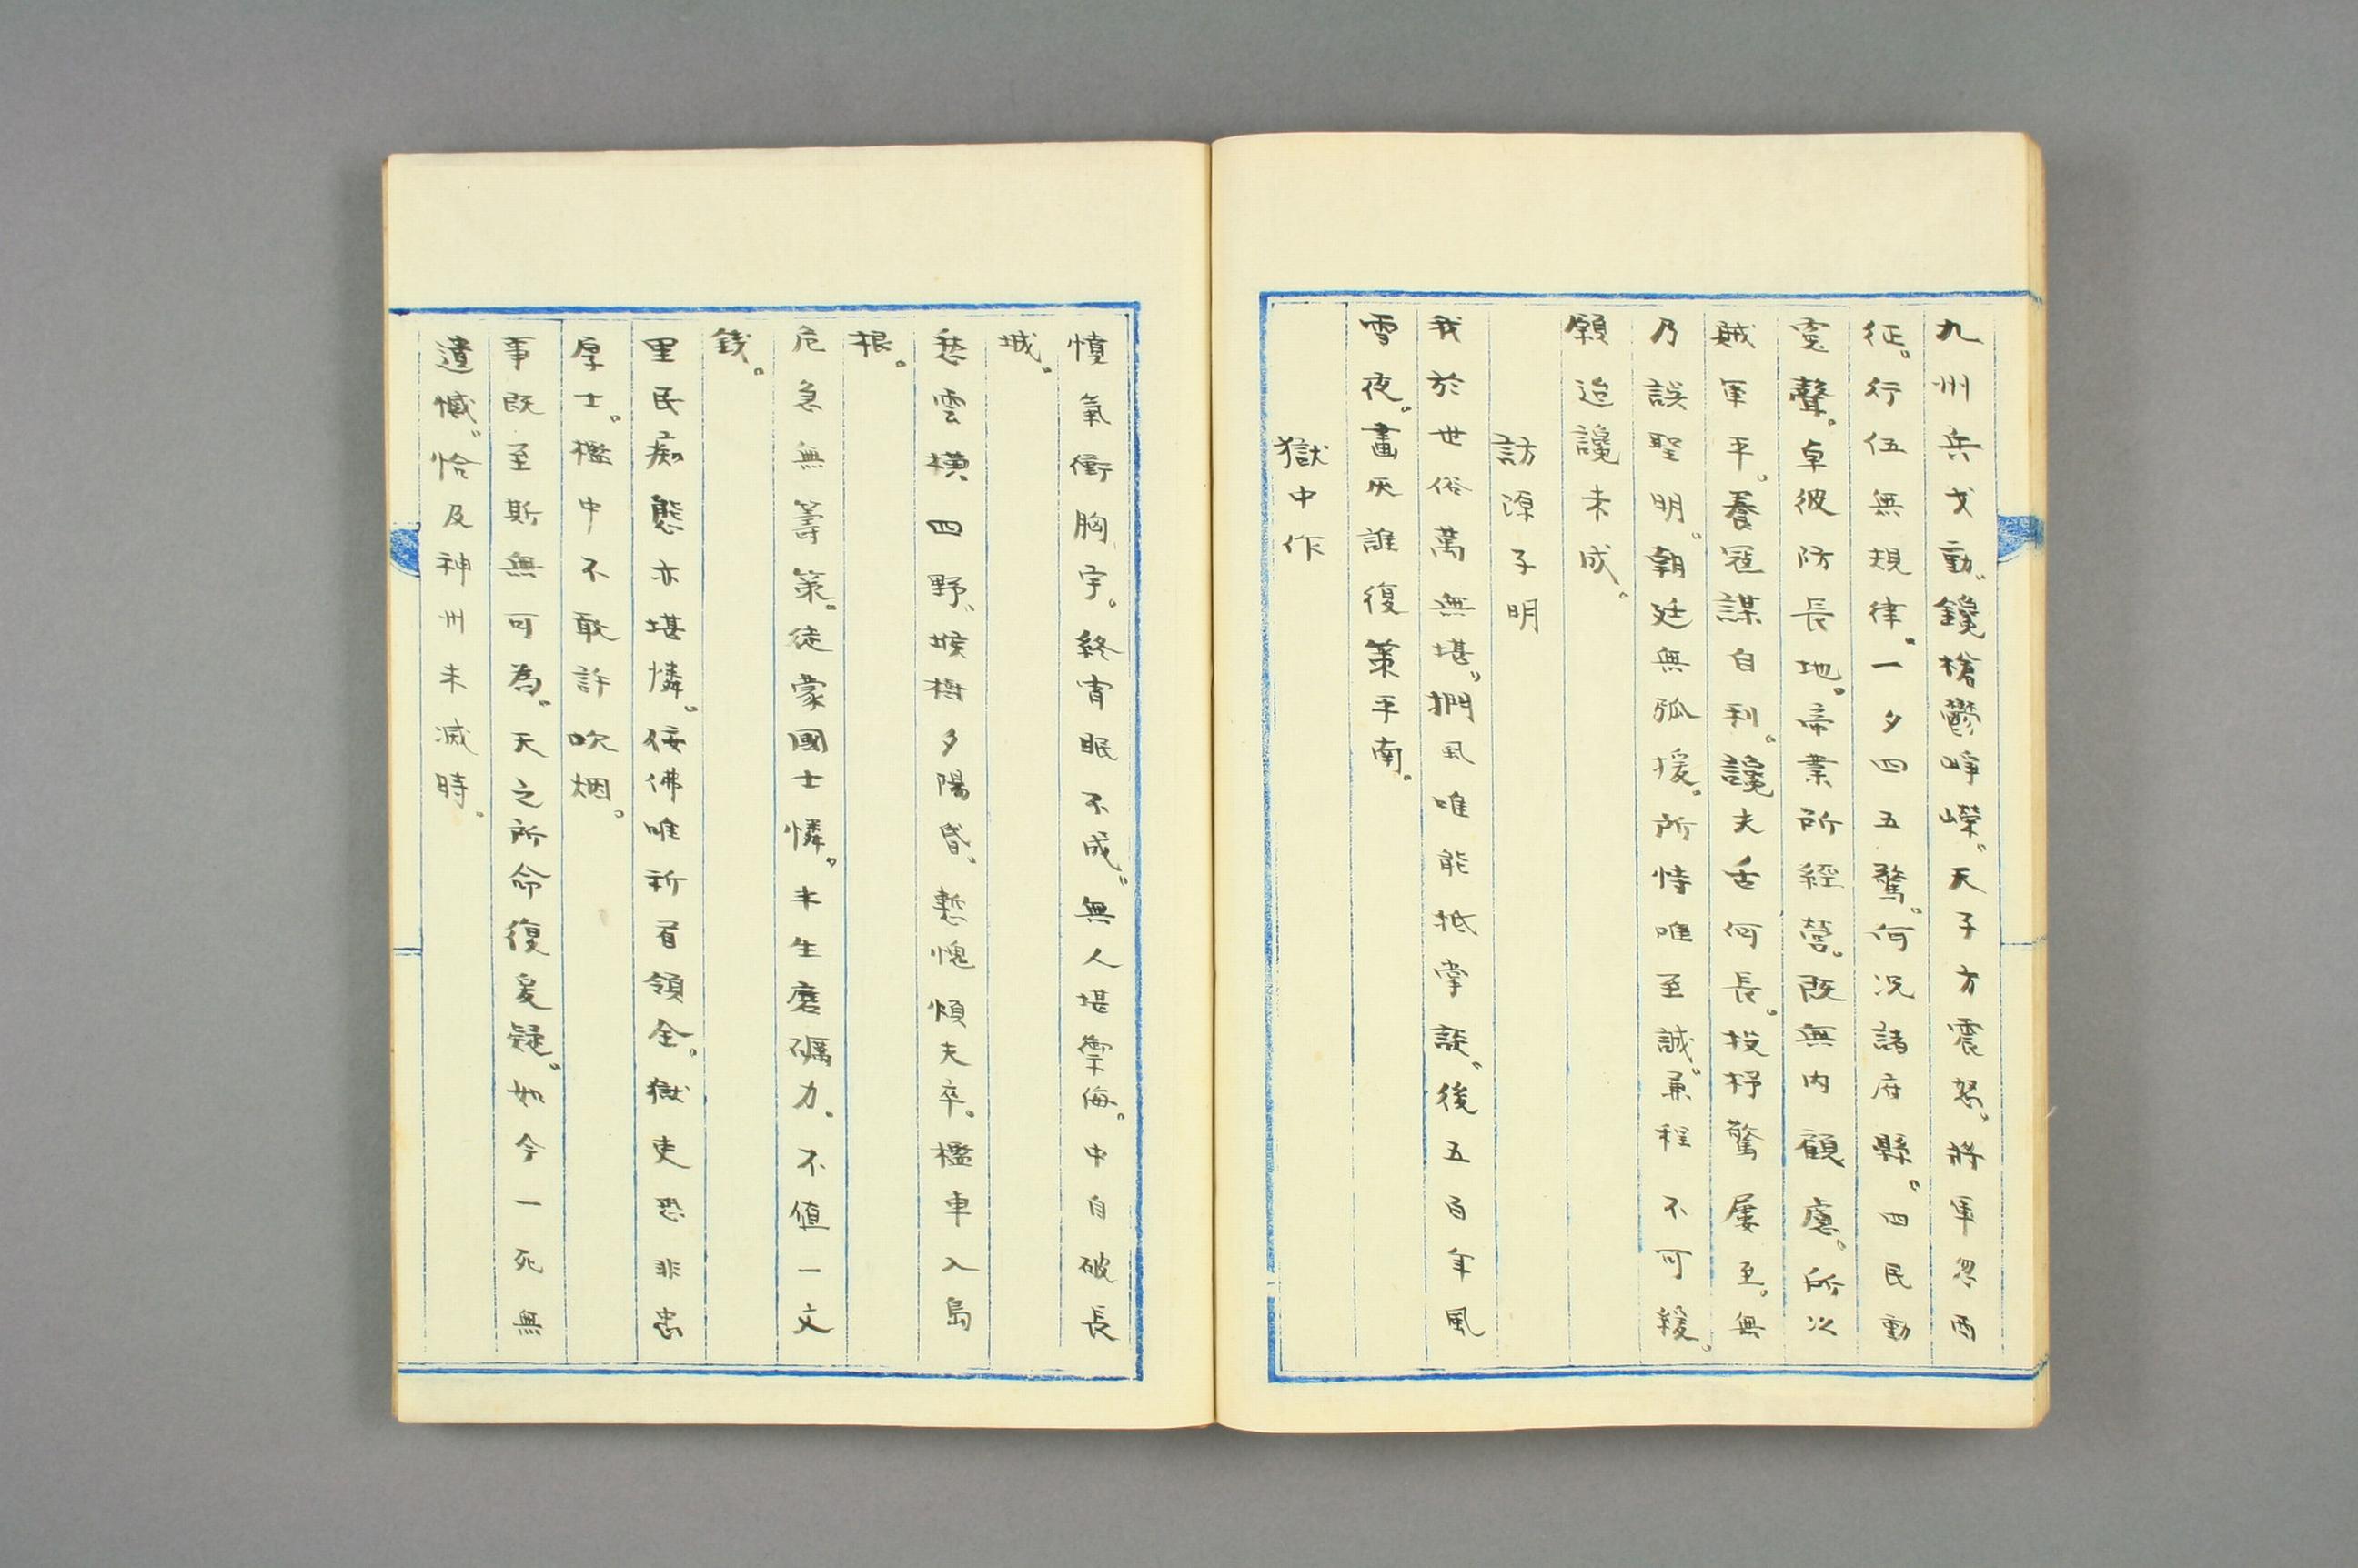 九州兵戈動。鑱槍鬱崢嶸。天子方震怒。將軍忽西
征。行伍無規律。一夕四五驚。何況諸府縣。四民動
寃聲。卓彼防長地。帝業所經營。既無内顧慮。所以
賊軍平。養寇謀自利。讒夫舌何長。投杼驚屢至。無
乃誤聖明。朝廷無孤援。所恃唯至誠。兼程不可緩。
願迨讒未成。
訪源子明
我於世俗萬無堪。捫風唯能抵掌談。後五百年風
雪夜。畫灰誰復策平南。
獄中作
憤氣衝胸宇。終宵眠不成。無人堪禦侮。中自破長
城。
愁雲橫四野。堠樹夕陽昏。慙愧煩夫卒。檻車入島
根。
危急無籌策。徒蒙國士憐。未生磨礪力。不値一文
錢。
里民痴態亦堪憐。佞佛唯祈首領全。獄吏恐非忠
厚士。檻中不敢許吹烟。
事既至斯無可為。天之所命復爰疑。如今一死無
遺憾。恰及神州未滅時。